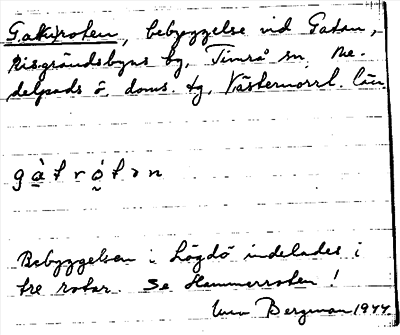 Gaturoten, bebyggelse vid Gatan,
Risgrändsbyns by, Timrå sn, Me-
delpads ö. doms. tg, Västernorrl. län.
gàtrótən
Bebyggelsen i Lögdö indelades i
tre rotar. Se Hammarroten!
Bergman 1944